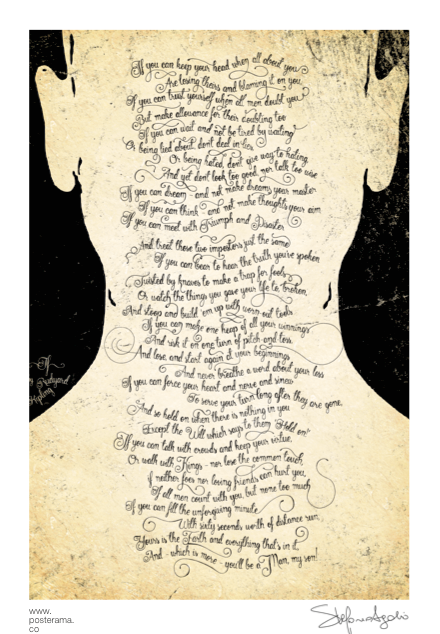 If you can keep your head when all about you
Are losing theirs and blaming it on you,
If you can trust yourself when all men doubt you,
But make allowance for their doubting too
If you can wait and not be tired by waiting
Or being lied about, don't deal in lies
Or being hated, don't give way to hating
And yet don't look too good, nor talk too wise
If you can dream - and not make dreams your master
If you can think - and not make thoughts your aim
If you can meet with Triumph and Disaster
And treat those two impostors just the same
If you can bear to hear the truth you've spoken
Twisted by knaves to make a trap for fools,
Or watch the things you gave your life to, broken,
And stoop and build 'em up with worn out tools
If you can make one heap of all your winnings
And risk it on one turn of pitch and toss
And lose, and start again at your beginnings
And never breathe a word about your loss
If you can force your heart and nerve and sinew
To serve your turn long after they are gone,
And so hold on when there is nothing in you
Except the Will which says to them "Hold on"
If you can talk with crowds and keep your virtue,
Or walk with Kings - nor lose the common touch,
If neither foes nor loving friends can hurt you,
If all men count with you, but none too much
If you can fill the unforgiving minute
With sixty seconds worth of distance run,
Yours is the Earth and everything that's in it,
And - which is more - you'll be a Man, my son!
If
Rudyard
Kipling
www.
posterama.
co